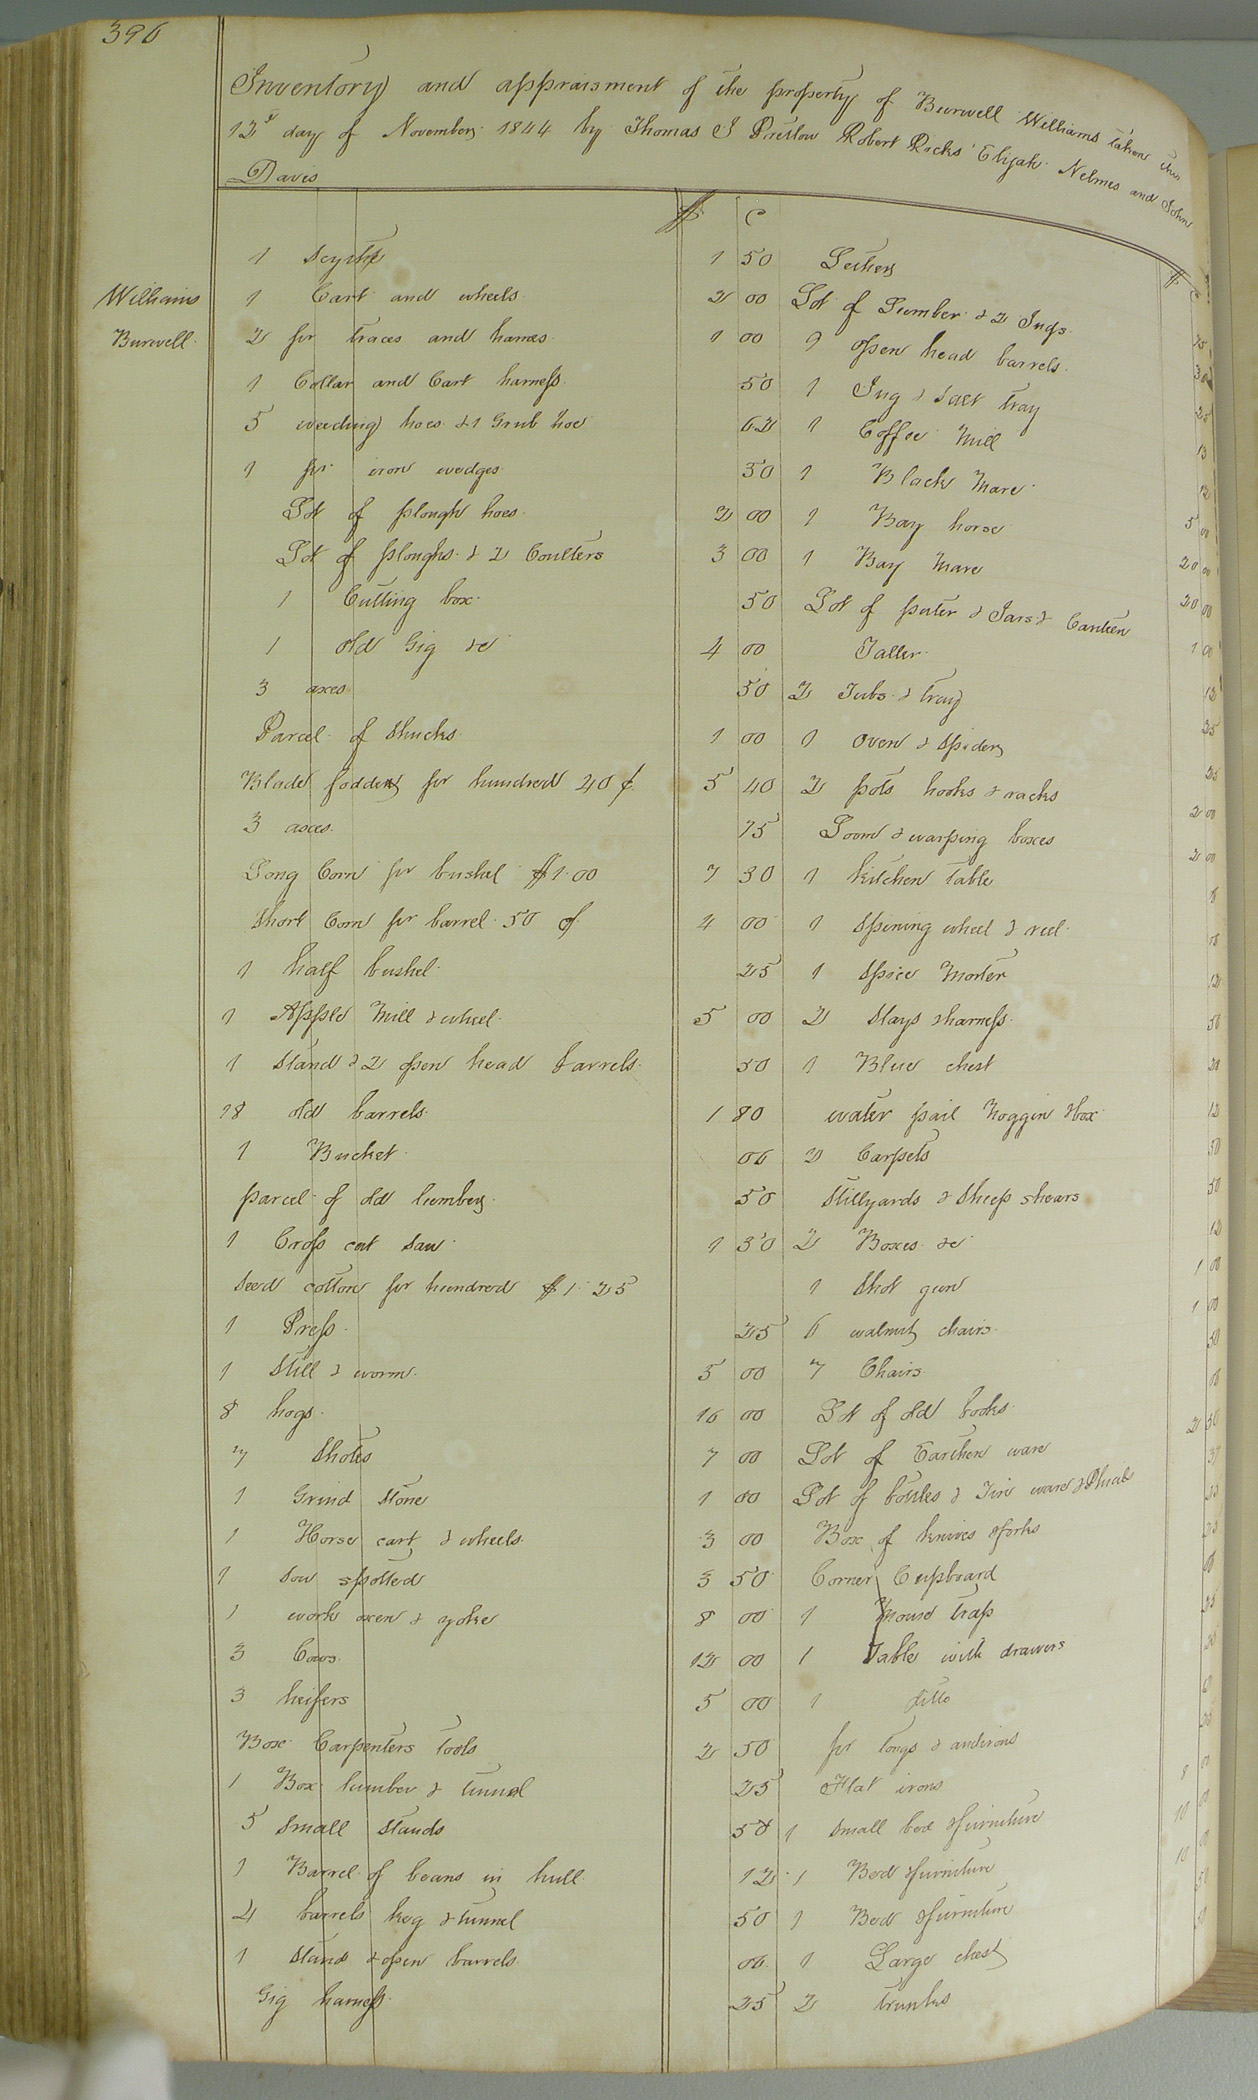 396
Inventory and appraisment of the property of Burwell Williams taken this
12th day of November 1844 by Thomas J Pretlow Robert Ricks Elijah Nelmes and John
Davis
Williams
Burwell
$ C
1 Scythe 1 50
1 Cart and wheels 2 00
2 pr traces and hames 1 00
1 Collar and Cart harness 50
5 weeding hoes & 1 Grub hoe 62
1 pr iron wedges 50
Lot of plough hoes 2 00
Lot of ploughs & 2 Coulters 3 00
1 Cutting box 50
1 old Gig &c 4 00
3 axes 50
Parcel of Shucks 1 00
Blade fodder pr hundred 40 ¢ 5 40
3 axes 75
Long Corn pr bushel $1.00 7 30
Short Corn pr barrel 50 ¢ 4 00
1 half bushel 25
1 Apple Mill & wheel 5 00
1 Stand & 2 open head barrels 50
18 old barrels 1 80
1 Bucket 06
parcel of old lumber 50
1 Cross cut Saw 1 50
Seed cotton pr hundred $1.25
1 Press 25
1 Still & worm 5 00
8 hogs 16 00
7 Shotes 7 00
1 Grind Stone 1 00
1 Horse cart & wheels 3 00
1 Sow spotted 3 50
1 work oxen & yoke 8 00
3 Cows 12 00
3 heifers 5 00
Box Carpenters tools 2 50
1 Box lumber & tunnel 25
5 Small Stands 50
1 Barrel of beans in hull 12
4 barrels keg & tunnel 50
1 Stand & open barrels 06
Gig harness 25
$ C
Lot of Lumber & 2 Jugs
9 open head barrels
1 Jug & salt tray
1 Coffee Mill
1 Black Mare
1 Bay horse
1 Bay Mare 20 00
Lot of puter & Jars & Canteen
Taller
2 Tubs & tray
1 oven & Spider
2 pots hooks & racks
Loom & warping boxes
1 kitchen table
1 Spining wheel & reel
1 Spice Morter
2 Slays & harness
1 Blue chest
water pail Noggin & box
2 Carpets
Stillyards & Sheep shears
2 Boxes &c
1 Shot gun
6 walnut chairs
7 Chairs
Lot of old books
Lot of Earthen ware
Lot of bottles & Tin ware & Phials
Box of knives & forks
Corner Cupboard
1 Mouse trap
1 Table with drawers
1 ditto
pr tongs & andirons
Flat irons
1 Small bed & furniture
1 Bed & furniture
1 Bed & furniture
1 Large chest
2 trunks